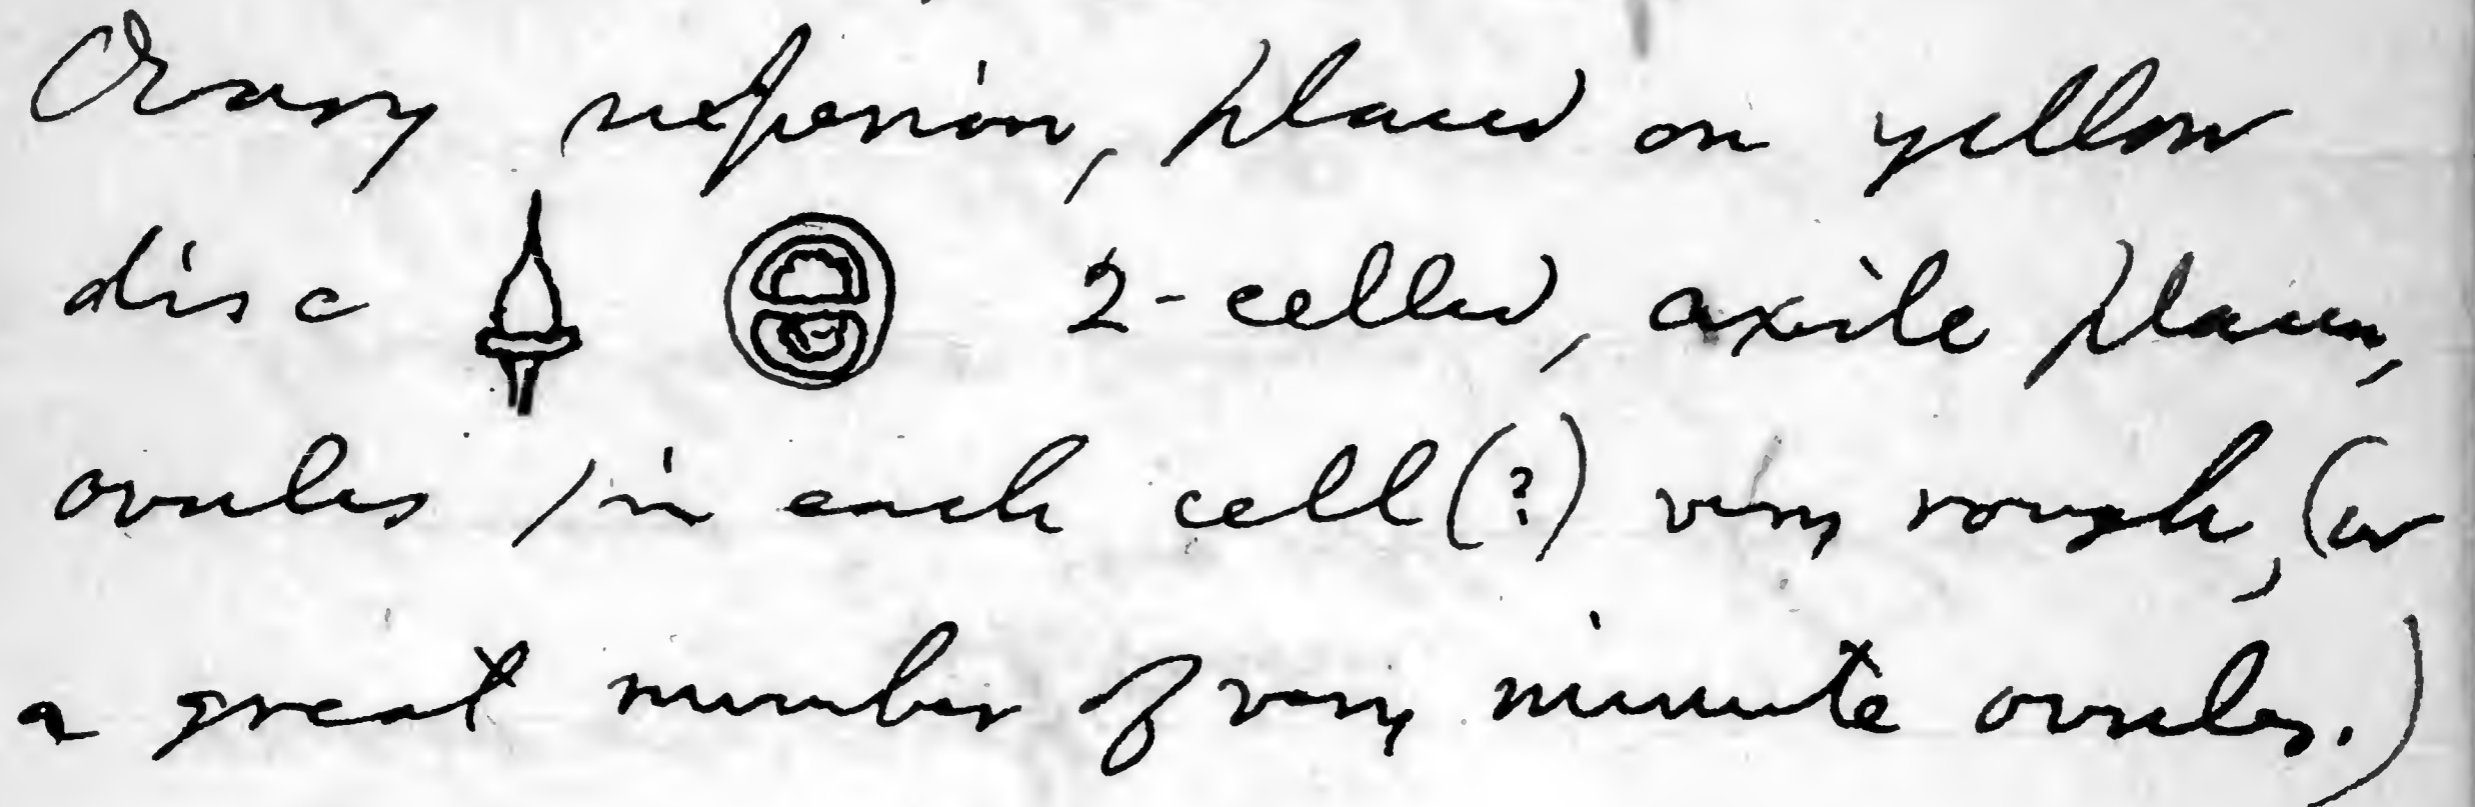 Ovary superior, placed on yellow
disc 2-celled, axile placen,
ovules 1 in each cell (?) very rough, (or
a great number of very minute ovules.)